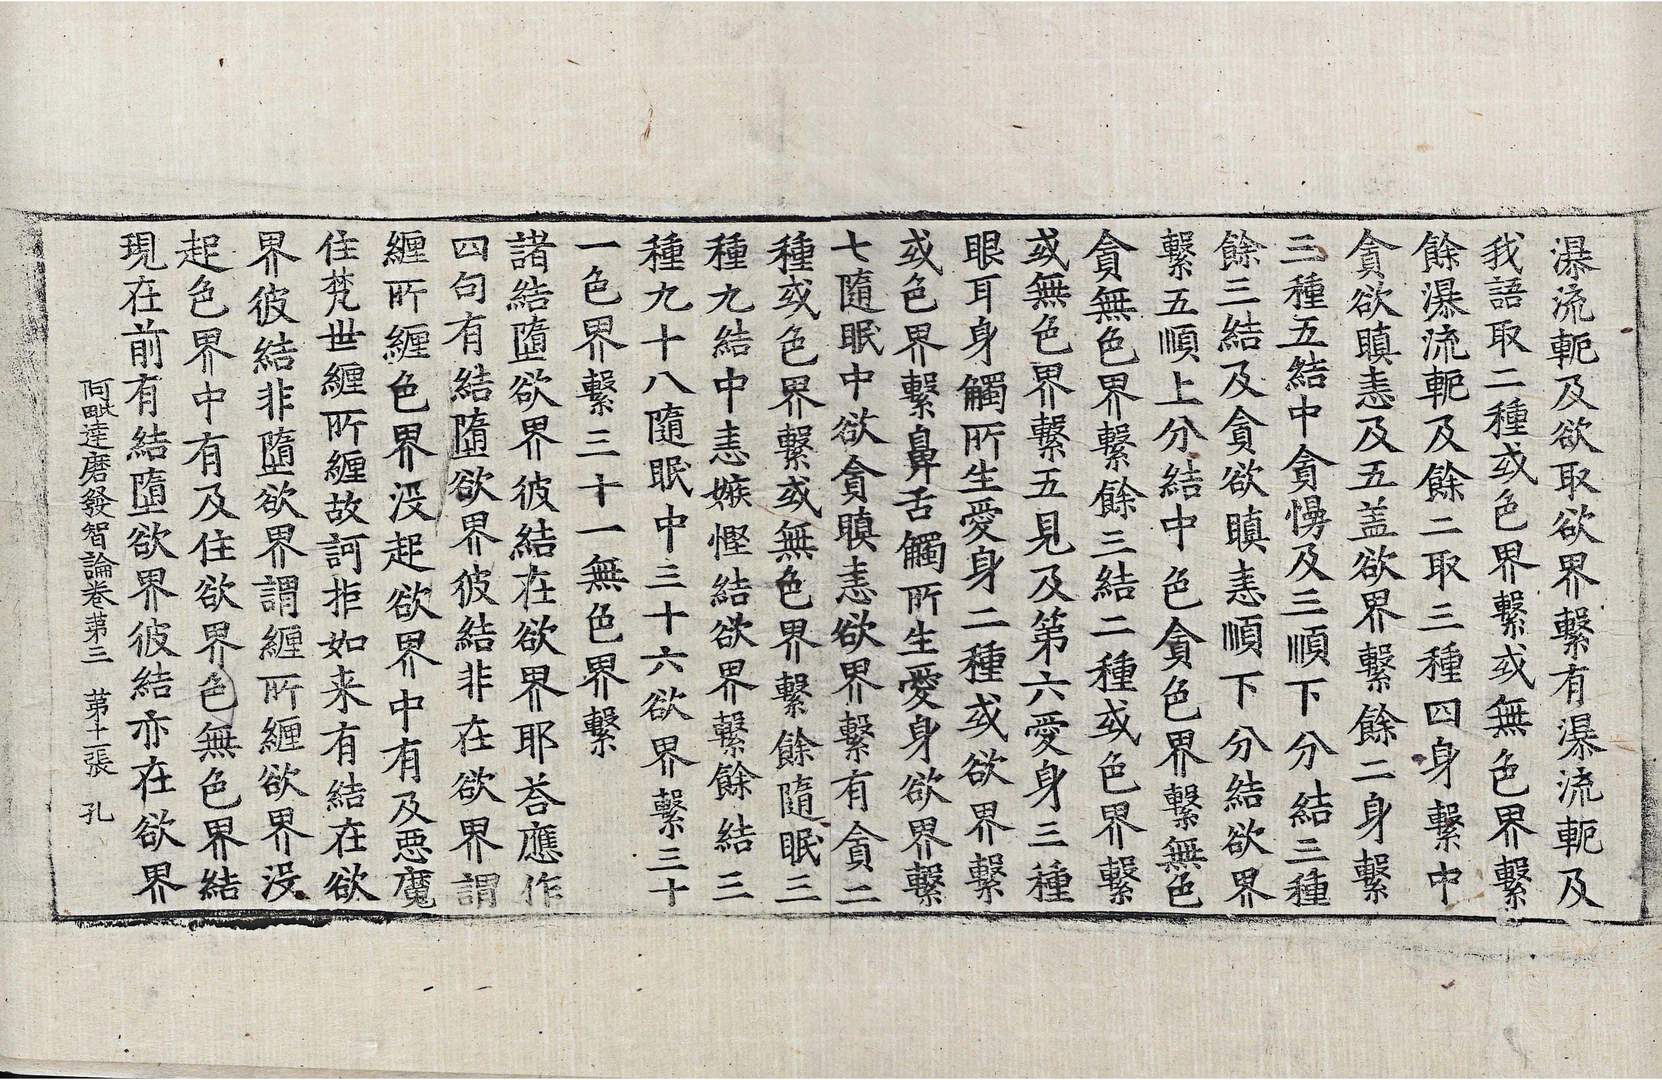 瀑流軛及欲取欲界繫有瀑流軛及
我語取二種或色界繫或無色界繫
餘瀑流軛及餘二取三種四身繫中
貪欲瞋恚及五盖欲界繫餘二身繫
三種五結中貪慢及三順下分結三種
餘三結及貪欲瞋恚順下分結欲界
繫五順上分結中色貪色界繫無色
貪無色界繫餘三結二種或色界繫
或無色界繫五見及第六愛身三種
眼耳身觸所生愛身二種或欲界繫
或色界繫鼻舌觸所生愛身欲界繫
七隨眠中欲貪瞋恚欲界繫有貪二
種或色界繫或無色界繫餘隨眠三
種九結中恚嫉慳結欲界繫餘結三
種九十八隨眠中三十六欲界繫三十
一色界繫三十一無色界繫
諸結墮欲界彼結在欲界耶荅應作
四句有結墮欲界彼結非在欲界謂
纏所纏色界没起欲界中有及惡魔
住梵世纏所纏故訶拒如来有結在欲
界彼結非墮欲界謂纏所纏欲界没
起色界中有及住欲界色無色界結
現在前有結墮欲界彼結亦在欲界
阿毗達磨發智論卷第三　第十一張　孔